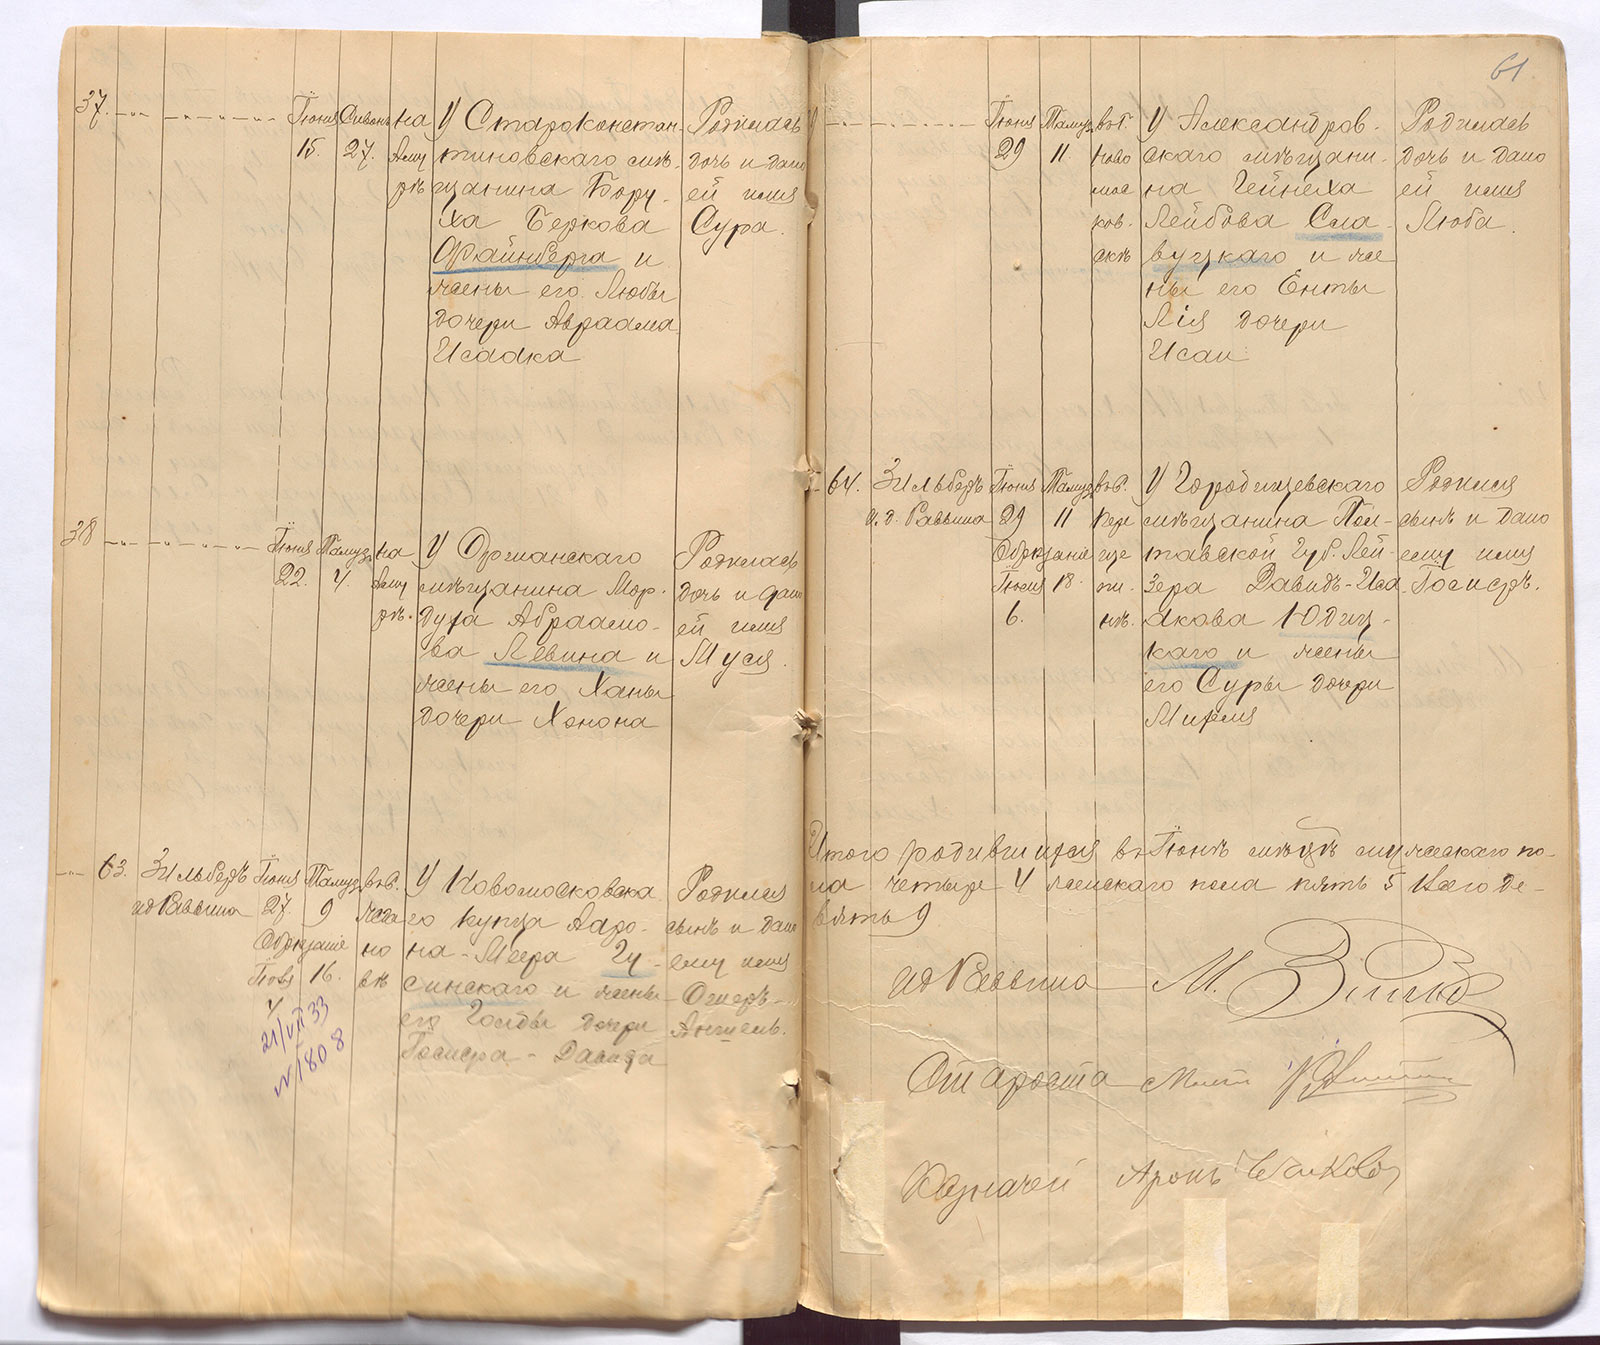 37.
Іюня
15.
Сивонъ
27.
на
Аму
рѣ
У Староконстан-
тиновскаго мѣ-
щанина Бору-
ха Беркова
Файнберга и
жены его Любы
дочери Авраама
Исаака
Родилась
дочь и дано
ей имя
Сура.
38
Іюня
22.
Тамузъ
4.
на
Аму
рѣ.
У Оршанскаго
мѣщанина Мор-
духа Абрамо-
ва Левина и
жены его Ханы
дочери Хонона
Родилась
дочь и дано
ей имя
Муся.
63.
Зильберъ
ид Раввина
Іюня
27
Обрѣзаніе
Іюля
4
Тамузъ
9
16.
въ Р.
но
вѣ
У Новомосковска
го купца Ааро-
на-Меера Гу-
синскаго и жены
его Голды дочери
Іосифа-Давида
Родился
сынъ и дано
ему имя
Ошеръ-
Аншель.
21/VII 33
№ 1808
61
Іюня
29
Тамузъ
11.
въ Г.
Ново
мос
ков-
скѣ
У Александров-
скаго мѣщани-
на Гейнеха
Лейбова Сла-
вуцкаго и же
ны его Енты
Лія дочери
Исаи
Родилась
дочь и дано
ей имя
Люба.
64.
Зильберъ
и.д. Раввина
Іюня
29
Обрѣзаніе
Іюля
6.
Тамузъ
11
18.
въ Р.
Пере
ще
пи-
нѣ.
У Городищевскаго
мѣщанина Пол-
тавской Губ. Лей-
зера Давидъ-Иса
акова Юдиц-
каго и жены
его Суры дочери
Родился
сынъ и дано
ему имя
Іосифъ.
Итого родившихся въ Іюнѣ мѣсцѣ мужескаго по-
ла четыре 4 женскаго пола пять 5 Всего де-
вять 9
ид Раввина М. Зильбер
Староста
Казначей Аронъ